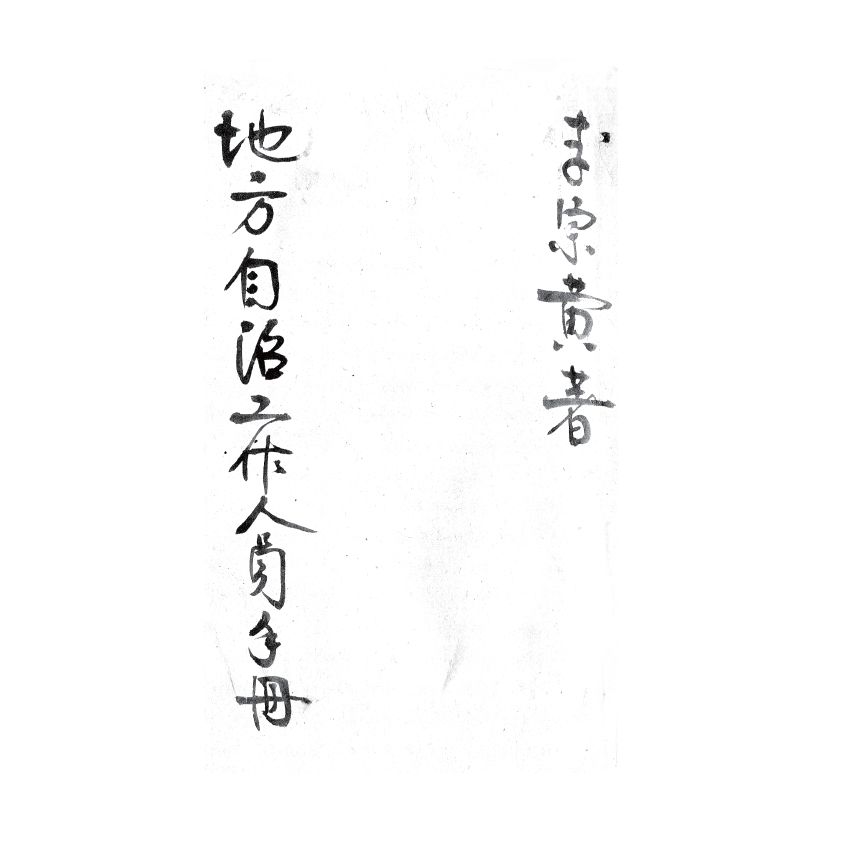 李宗黄著
地方自治工作人員手册